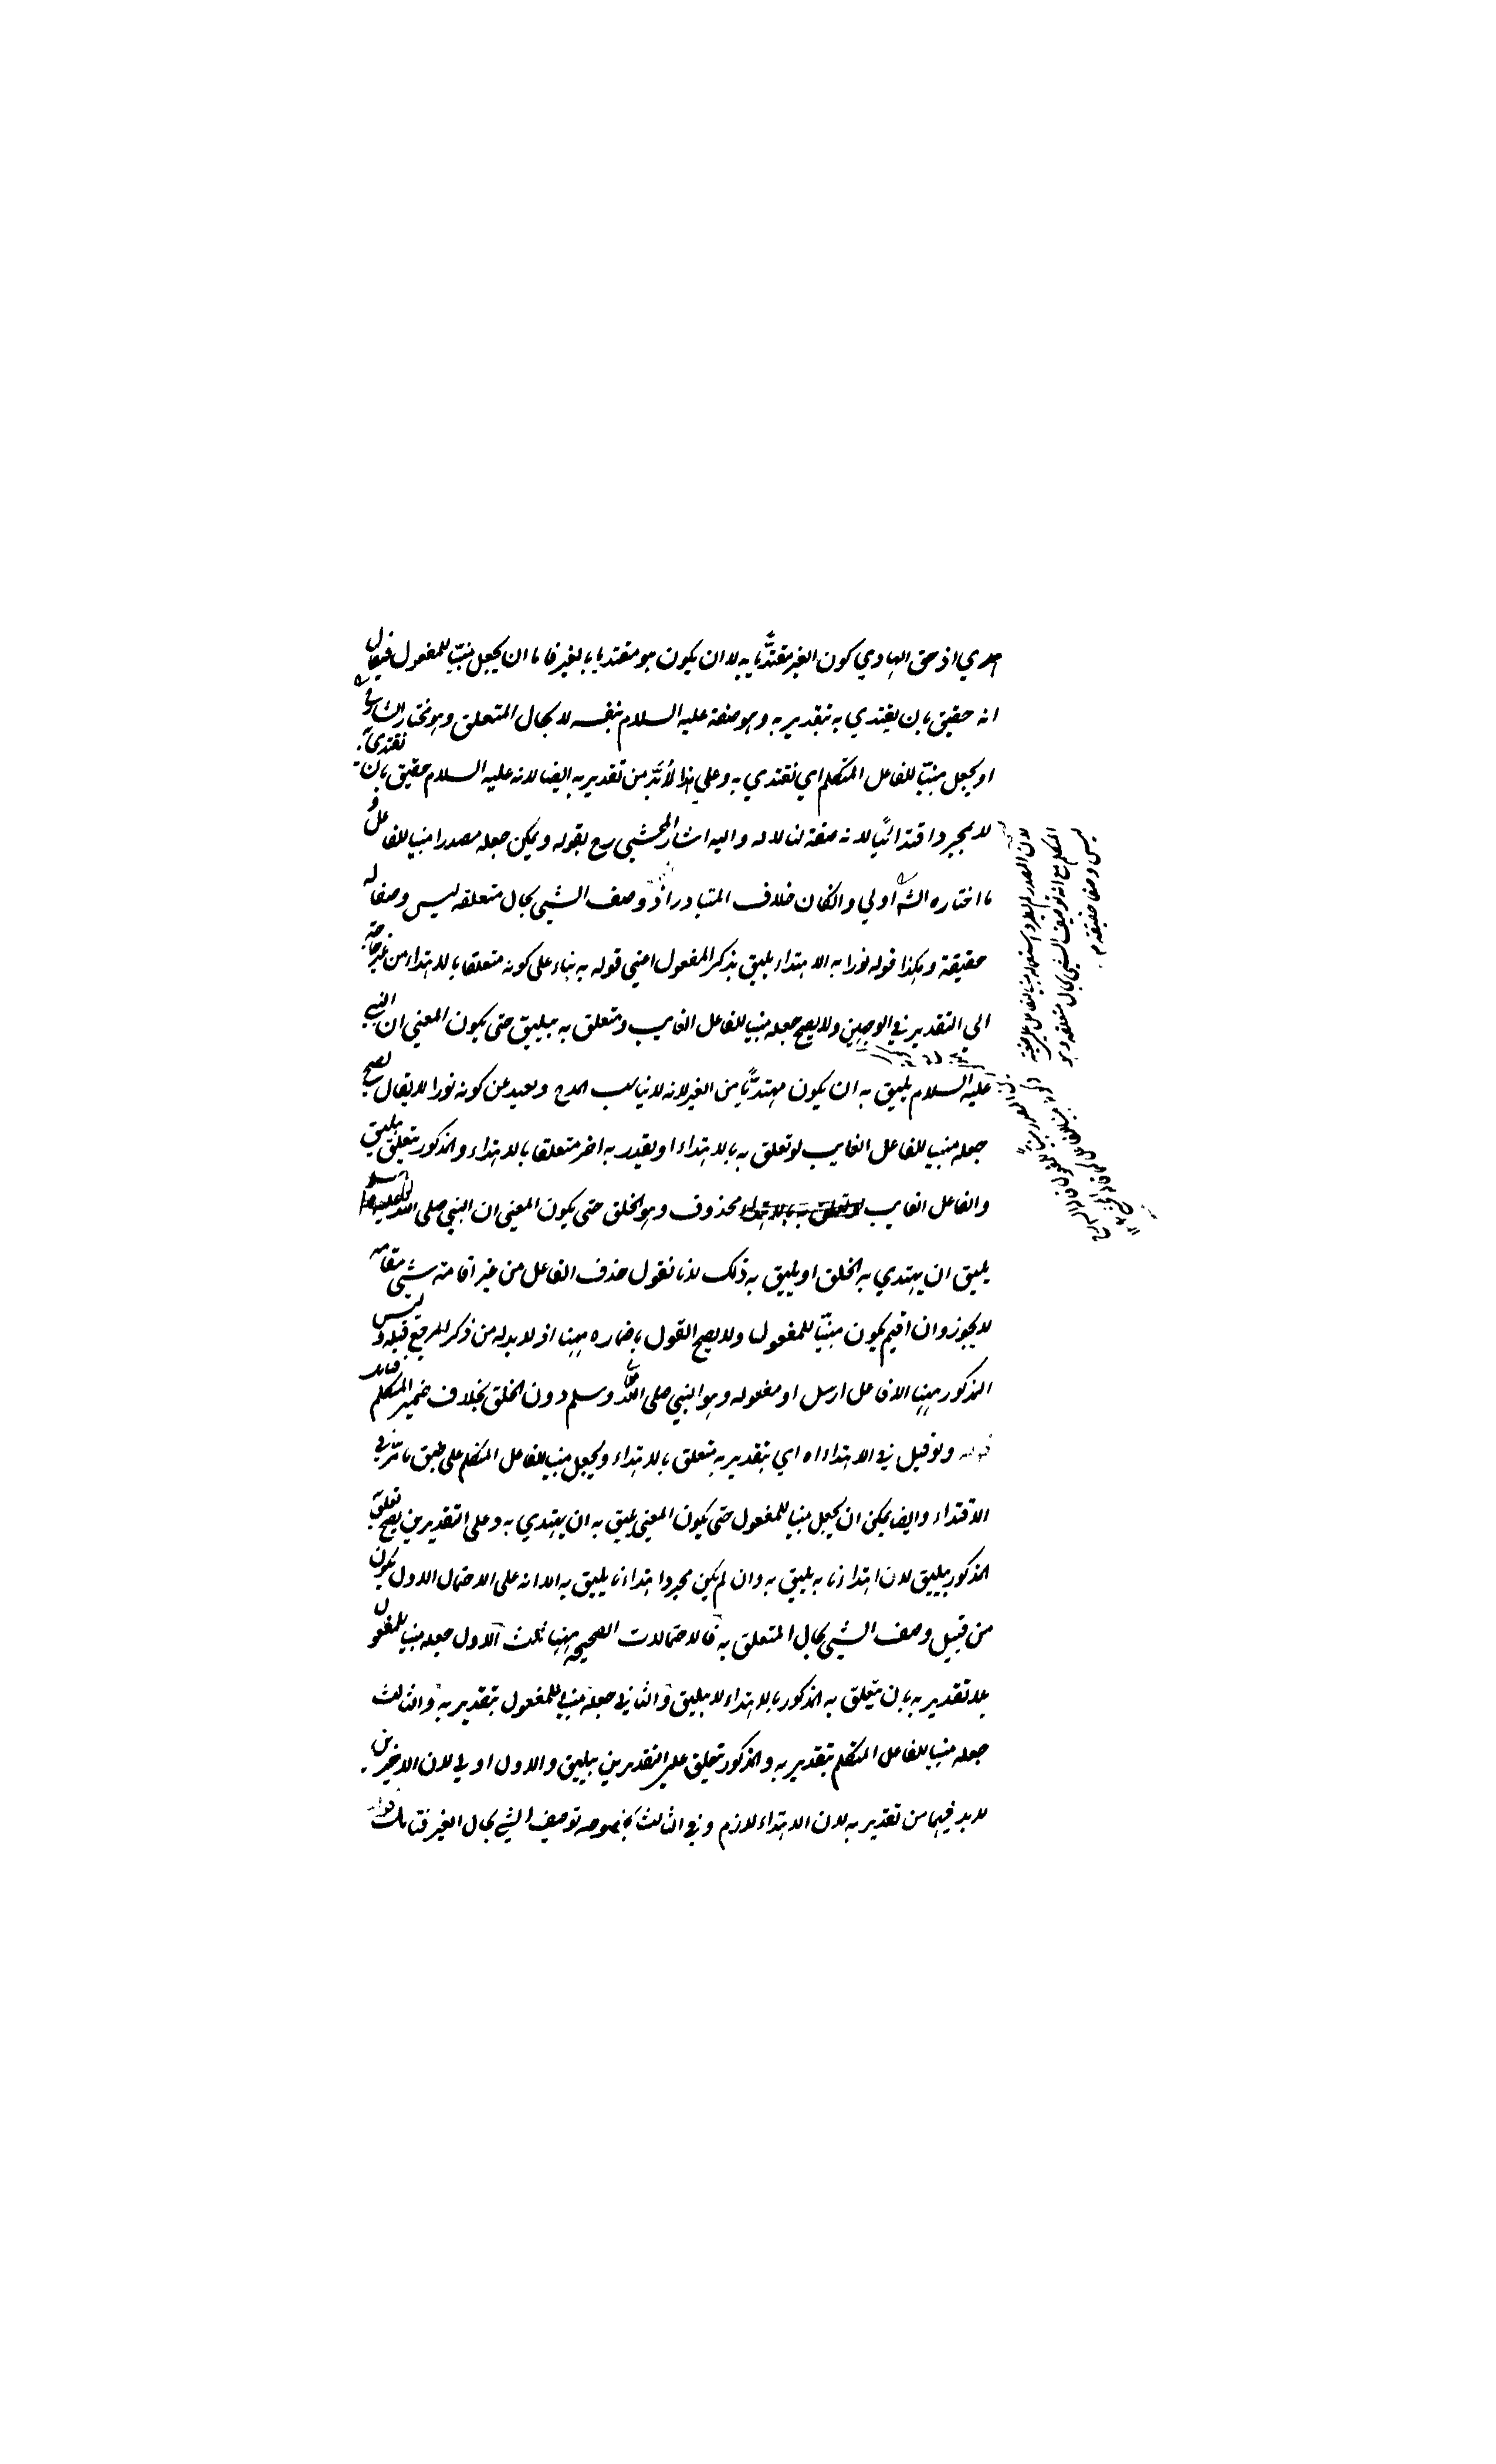 هدي اذ حق الهادي كون الغير مقتديا به لا ان يكون هو مقتديا بالغير فاما ان يجعل مبنيّا للمفعول فيقال
انه حقيق بان يقتدي به بتقدير به وهو صفة عليه السلام بنفسه لا بحال المتعلق وهو مختار الشارح
او يجعل مبنيّا للفاعل المتكلم اي نقتدي به وعلي هذا لا بدّ من تقدير به ايضا لانه عليه السلام حقيق بان نقتدي به
لا بمجرد اقتدائنا لانه صفة لنا لا له واليه اشار المحشي رح بقوله ويمكن جعله مصدرا مبنيا للفاعل و
ما اختاره الشه اولي والكان خلاف المتبادر اذ وصف الشيئ بحال متعلقه ليس وصفا له
حقيقة وهكذا قوله نورا به الاهتداء يليق بذكر المفعول اعني قوله به بناء على كونه متعلقا بالاهتداء من غير حاجة
الى التقدير في الوجهين ولا يصح جعله مبنيا للفاعل الغايب ومتعلق به بيليق حتى يكون المعني ان النبي
عليه السلام يليق به ان يكون مهتديًا من الغير لانه لا يناسب المدح وبعيد عن كونه نورا لا يقال يصح
جعله مبنيا للفاعل الغايب لو تعلق به بالاهتداء او يقدر به اخر متعلقا بالاهتداء والمذكور يتعلق بيليق
والفاعل الغايب محذوف وهو الخلق حتى يكون المعني ان النبي صلى الله عليه وسلم
يليق ان يهتدي به الخلق او يليق به ذلك لانا نقول حذف الفاعل من غير اقامة شيئ مقامه
لا يجوز وان اقيم يكون مبنيّا للمفعول ولا يصح القول باضماره ههنا اذ لا بد له من ذكر المرجع قبله وليس
المذكور ههنا الا فاعل ارسل او مفعوله وهو النبي صلى الله وسلم دون الخلق بخلاف ضمير المتكلم
قوله ولو قيل في الاهتداء اه اي بتقدير به متعلق بالاهتداء ويجعل مبنيا للفاعل المتكلم على طبق ما مرّ في
الاقتداء وايضا يمكن ان يجعل مبنيا للمفعول حتى يكون المعني يليق به ان يهتدي به وعلى التقديرين يصح تعلق
المذكور بيليق لان اهتداءنا به يليق به وان لم يكن مجرد اهتداءنا يليق به الا انه على الاحتمال الاول يكون
من قبيل وصف الشيئ بحال المتعلق به فالاحتمالات الصحيحة ههنا ثلث الاول جعله مبنيا للمفعول
بلا تقدير به بان يتعلق به المذكور بالاهتداء لا بيليق والثاني جعله مبنيا للمفعول بتقدير به والثالث
جعله مبنيا للفاعل المتكلم بتقدير به والمذكور تعلق على التقديرين بيليق والاول اولي لان الاخيرين
لا بد فيهما من تقدير به لان الاهتداء لازم وفي الثالث بخصوصه توصيف الشيئ بحال الغير فتامل قوله
لان المصدر استعماله مبنيا للفاعل علي صيغة
المتكلم مع انه توصيف الشيئ بحال متعلقه وهو
ليس وصفا حقيقة م